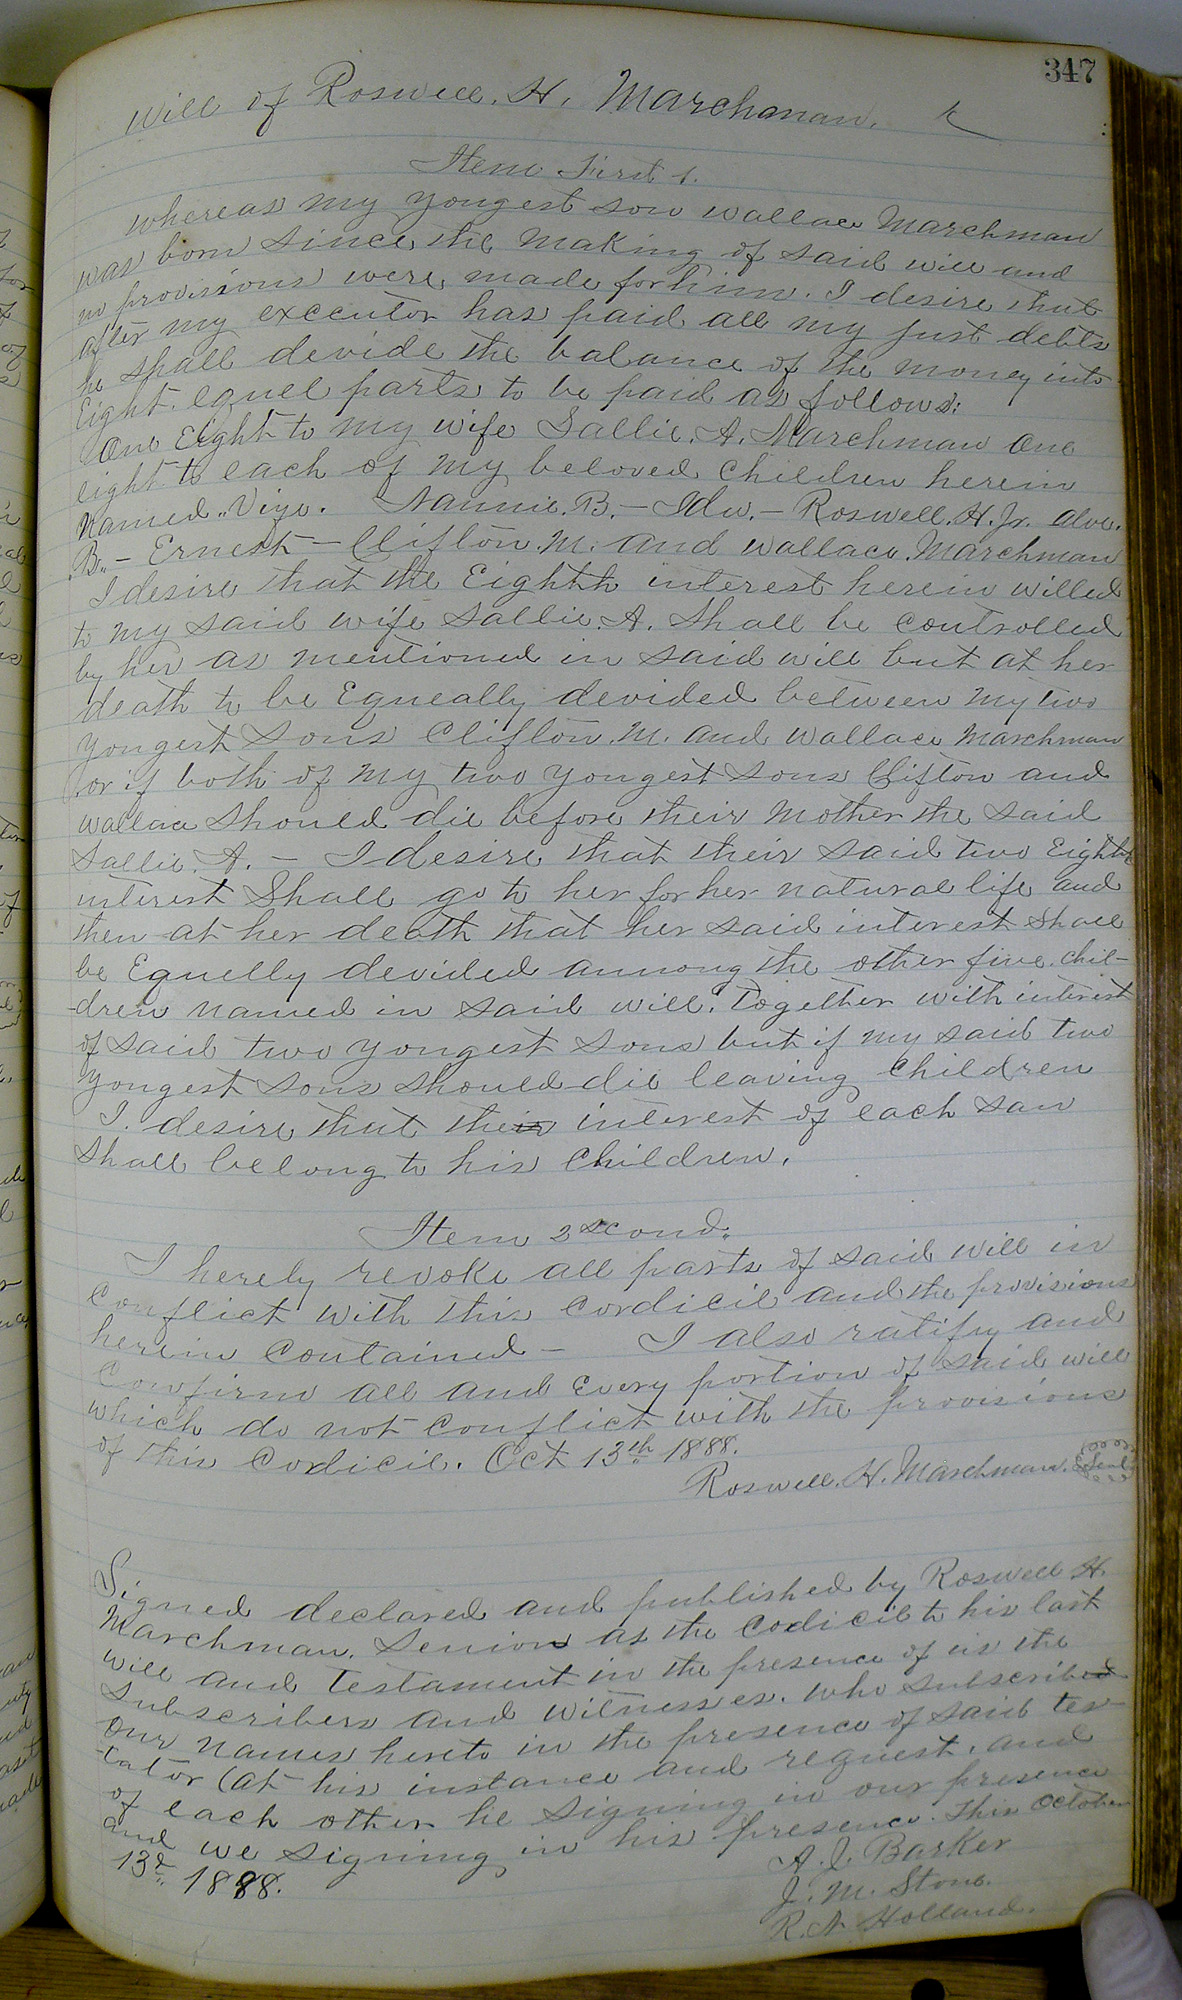 347
Will of Roswell. H. Marchman.
Item First 1.
whereas my yongest son Wallace Marchman
was born since the making of said will and
no provisions were made for him. I desire that
after my executor has paid all my just debts
he shall devide the balance of the money into
Eight equel parts to be paid as follows:
One Eight to my wife Sallie. A. Marchman One
eight to each of my beloved Children herein
Named "Viz. Nannie. B. – Ida. – Roswell. H. Jr. Alve.
B. – Ernest – Clifton. M. and Wallace. Marchman
I desire that the Eighth interest herein willed
to my said wife Sallie. A. Shall be controlled
by her as mentioned in said will but at her
death to be Equeally devided between my two
yongest Sons Clifton. M. and Wallace Marchman
or if both of my two yongest Sons Clifton and
Wallace Should die before their Mother the said
Sallie. A. – I desire that their said two Eights
interest Shall go to her for her natural life and
then at her death that her said interest Shall
be Equelly devided amnong the other five. Chil-
-dren named in said will. Together with interest
of said two yongest Sons but if my said two
yongest Sons Should die leaving Children
I. desire that their interest of each San
Shall belong to his Children.
Item 2second.
I herely revoke all parts of said will in
Conflict with this Cordicil and the provisions
herein Contained – I also ratify and
Confirm all and Every portion of said will
which do not Conflict with the provisions
of this Cordicil. Oct 13th 1888.
Roswell. H. Marchman. Seal
Signed declared and published by Roswell H.
Marchman. Senior as the Codicil to his last
will and Testament in the presence of us the
Subscribers and Witnesses. Who subscribed
Our Names hereto in the presence of said tes-
-tator (at his instance and request, and
of each other he Signing in our presence
and we Signing in his presence. This October
13d. 1888.
A. J. Barker
J. M. Stone.
R. N. Holland.